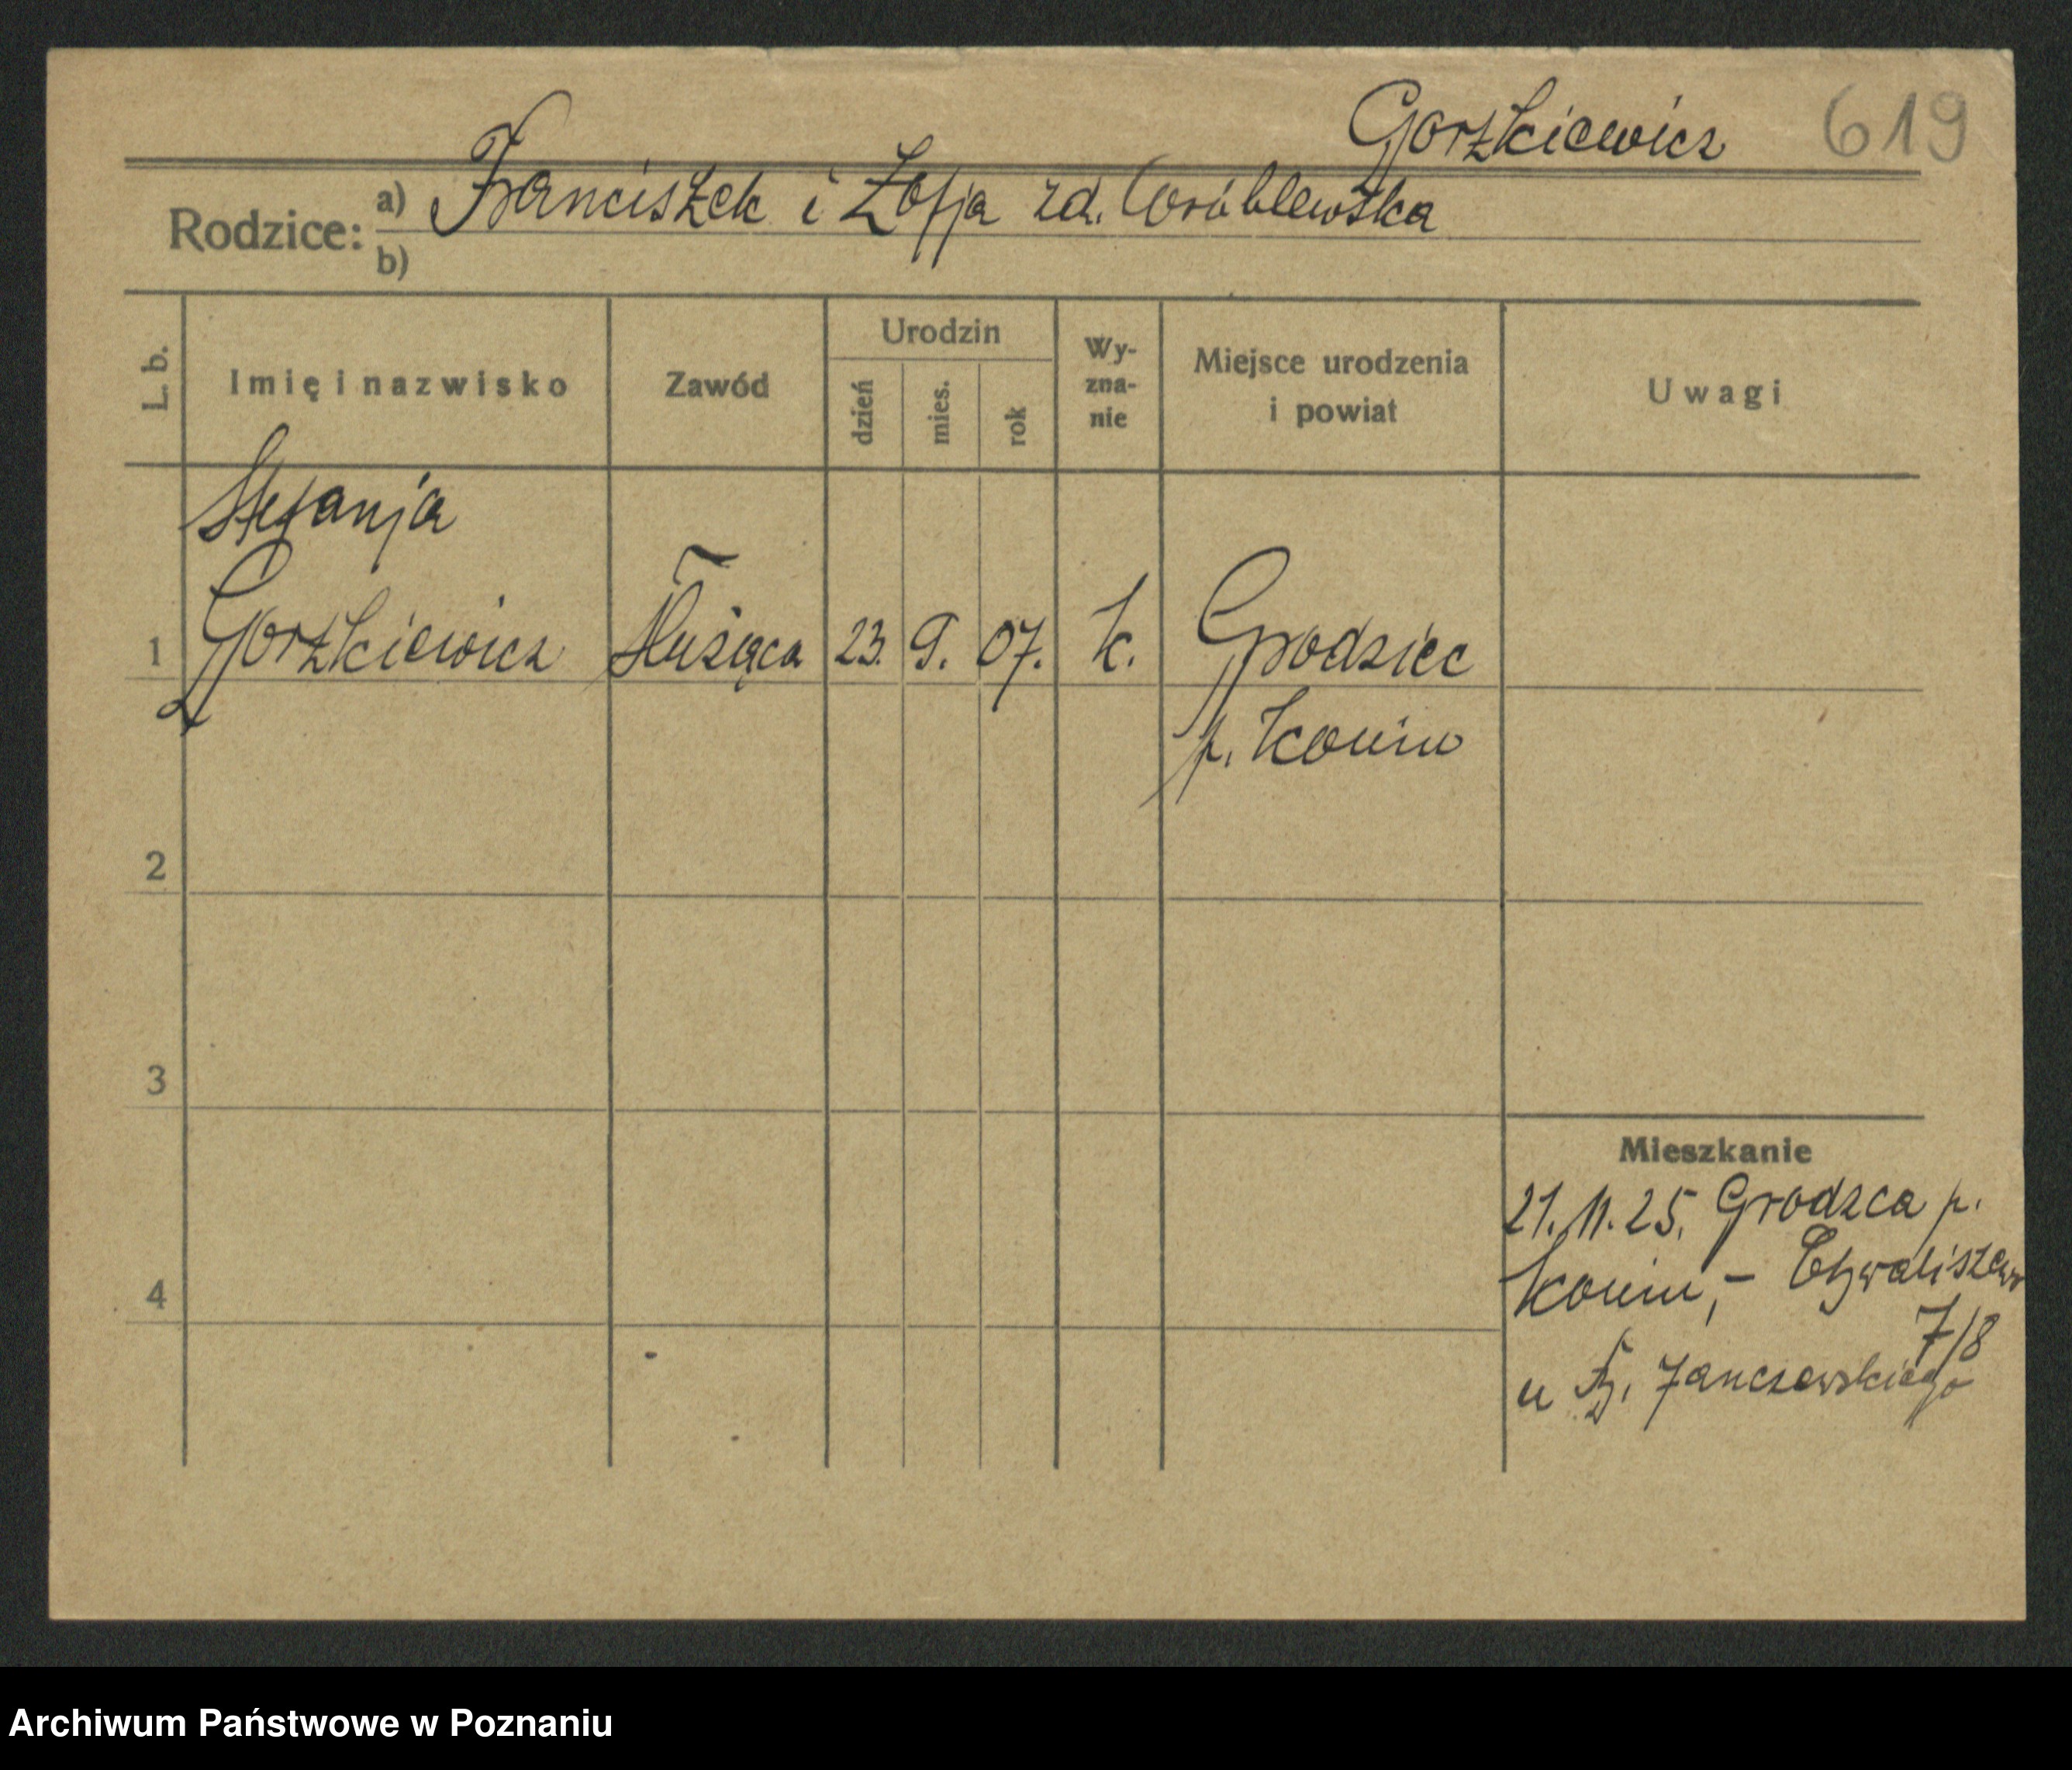 Gorzkiewicz 619
Rodzice: a) Franciszek i Zofja zd. Wróblewska
b)
L. b. Imię i nazwisko Zawód Urodzin dzień mies. rok Wy-zna-nie Miejsce urodzenia i powiat Uwagi
Stefanja
1 Gorzkiewicz Służąca 23. 9. 07. k. Grodziec
p. Konin
2
3
Mieszkanie
21.11.25. Grodzca p.
Konin, - Chwaliszewo
4
7/8
u Janczewskiego
Archiwum Państwowe w Poznaniu